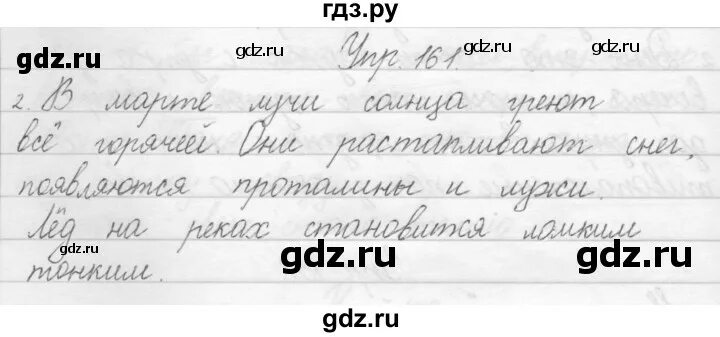 гдз.ру
gdz.ru gdz.ru gdz.ru
Упр. 161.
2. В марте лучи солнца греют
всё горячей. Они растапливают снег,
gdz.ru gdz.ru
появляются проталины и лужи.
Лёд на реках становится ломким
gdz.ru gdz.ru gdz.ru
тонким.
gdz.ru gdz.ru